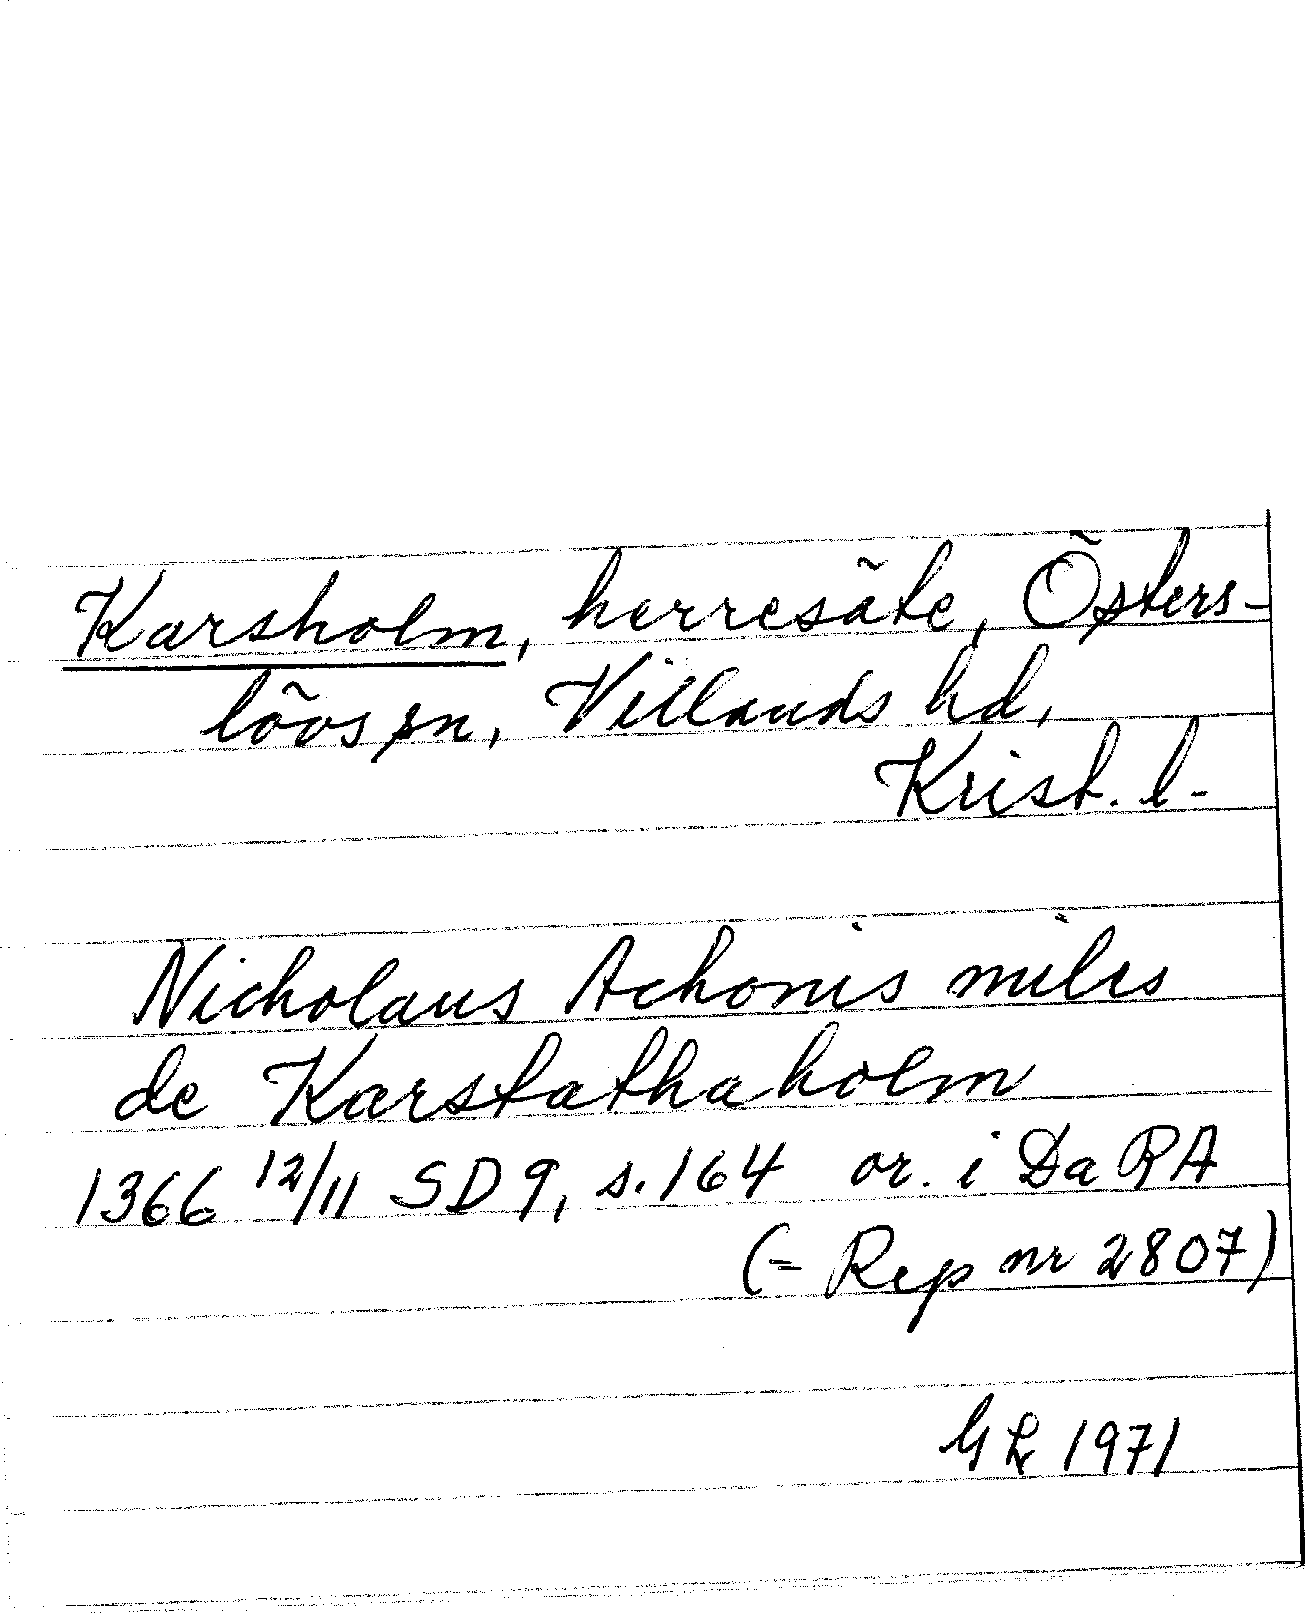 Karsholm, herresäte, Östers-
lövs sn, Villands hd,
Krist. l.
Nicholaus Achonis miles
de Karstathaholm
1366 12/11 SD 9, s. 164 or. i DaRA
(= Rep nr 2807)
GL 1971